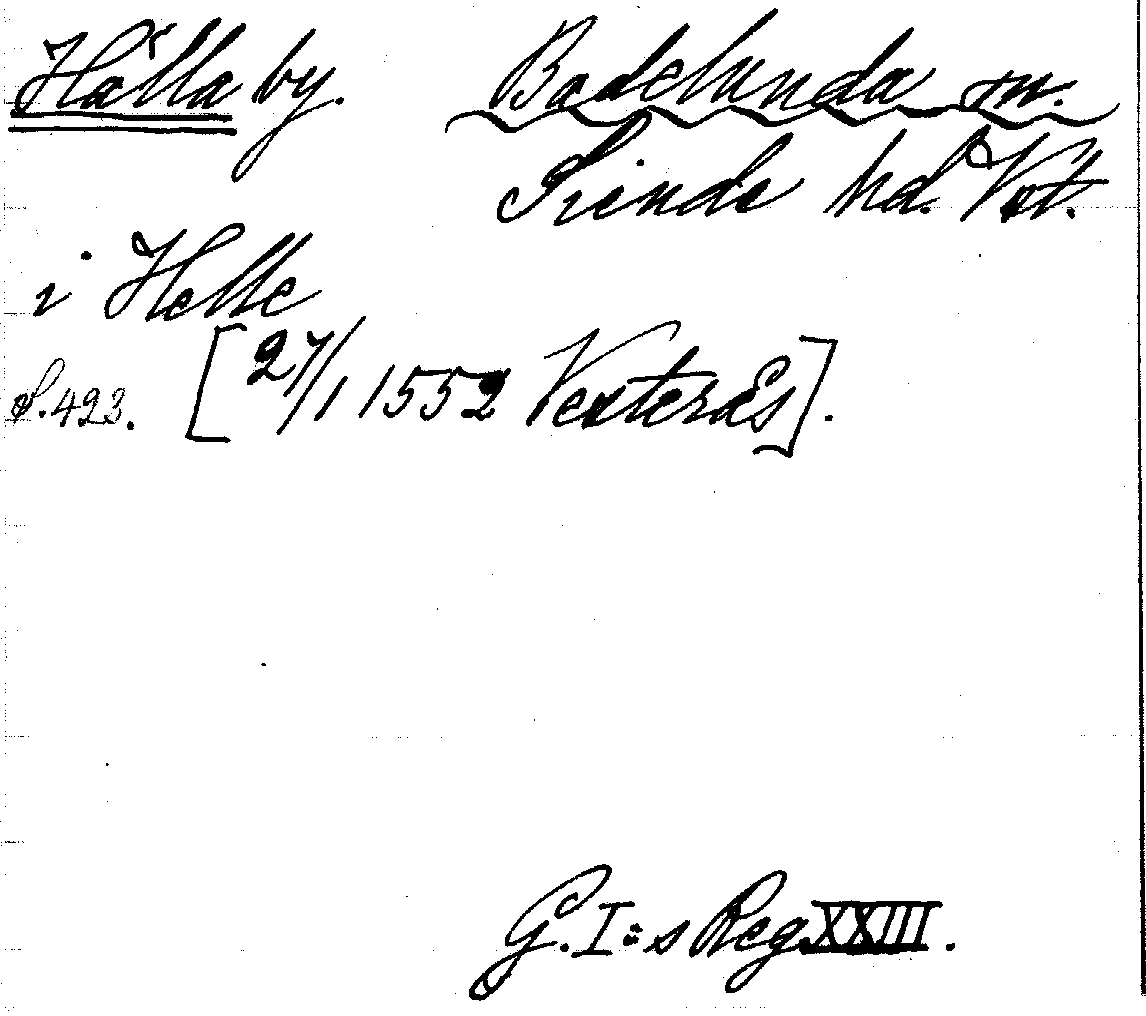 Hälla by. Badelunda sn.
Siende hd. Vstl.
i Helle
s. 423. [27/1 1552 Vesterås].
G. I:s Reg. XXIII.